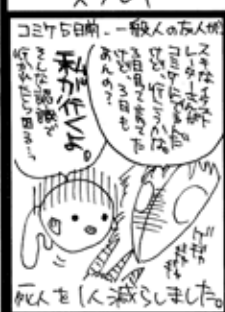 コミケ5日前、一般人の友人が
スキなイラスト
レーターさんが
コミケにでるんだ
けど、行こうかな。
3日目って言ってた
けど、3日も
あんの?
私が行くよ。
そんな認識で
行かれたら困る…
死人を1人減らしました。